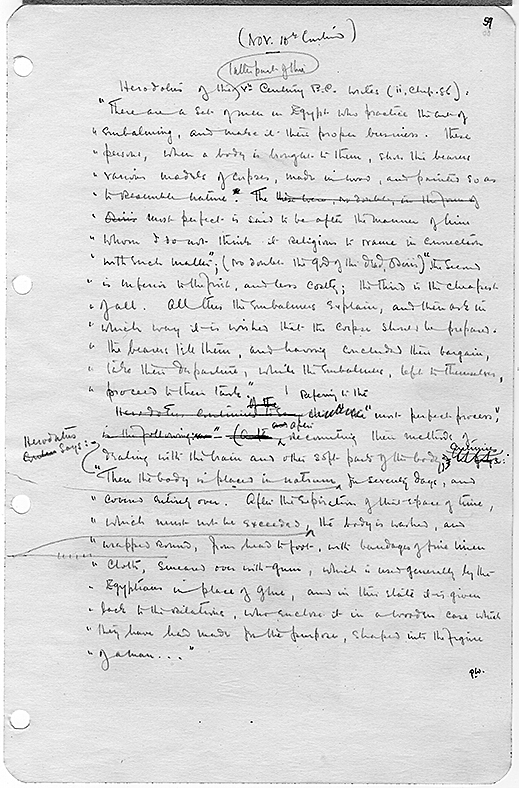 59
(Nov. 18th Continued)
latter part of the
Herodotus of the Vth Century B.C. writes (ii, Chap. 86):
"There are a set of men in Egypt who practice the art of
"embalming, and make it their proper business. These
"persons, when a body is brought to them, show the bearers
"various models of corpses, made in wood, and painted so as
"to resemble nature". The
"most perfect is said to be after the manner of him
"whom I do not think it religious to name in connection
"with such matter"; (no doubt the God of the dead, Osiris) "the second
"is inferior to the first, and less costly; the third is the cheapest
"of all. All this the embalmers explain, and then ask in
"which way it is wished that the corpse should be prepared.
"the bearers tell them, and having concluded their bargain,
"take their departure, while the embalmers, left to themselves,
"proceed to their task."
referring to the
"most perfect process",
in the following:
and after
Herodotus
says:-
recounting their methods of
dealing with the brain and other soft parts of the body,
"Then the body is placed in natrum for seventy days, and
"covered entirely over. After the expiration of that space of time,
"which must not be exceeded, the body is washed, and
"wrapped round, from head to foot, with bandages of fine linen
"cloth, smeared over with gum, which is used generally by the
"Egyptians in place of glue, and in this state it is given
"back to the relations, who enclose it in a wooden case which
"they have had made for the purpose, shaped into the figure
"of a man...."
P.W.